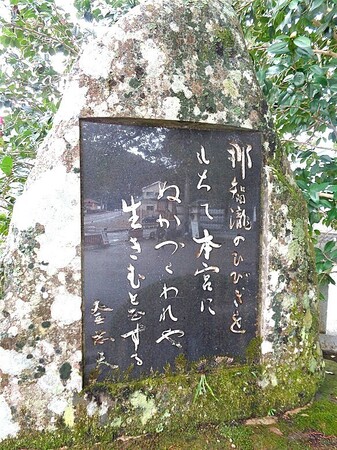 那智瀧のひびきを
もちて本宮に
ぬかづくわれや
生きむとぞする
登志夫